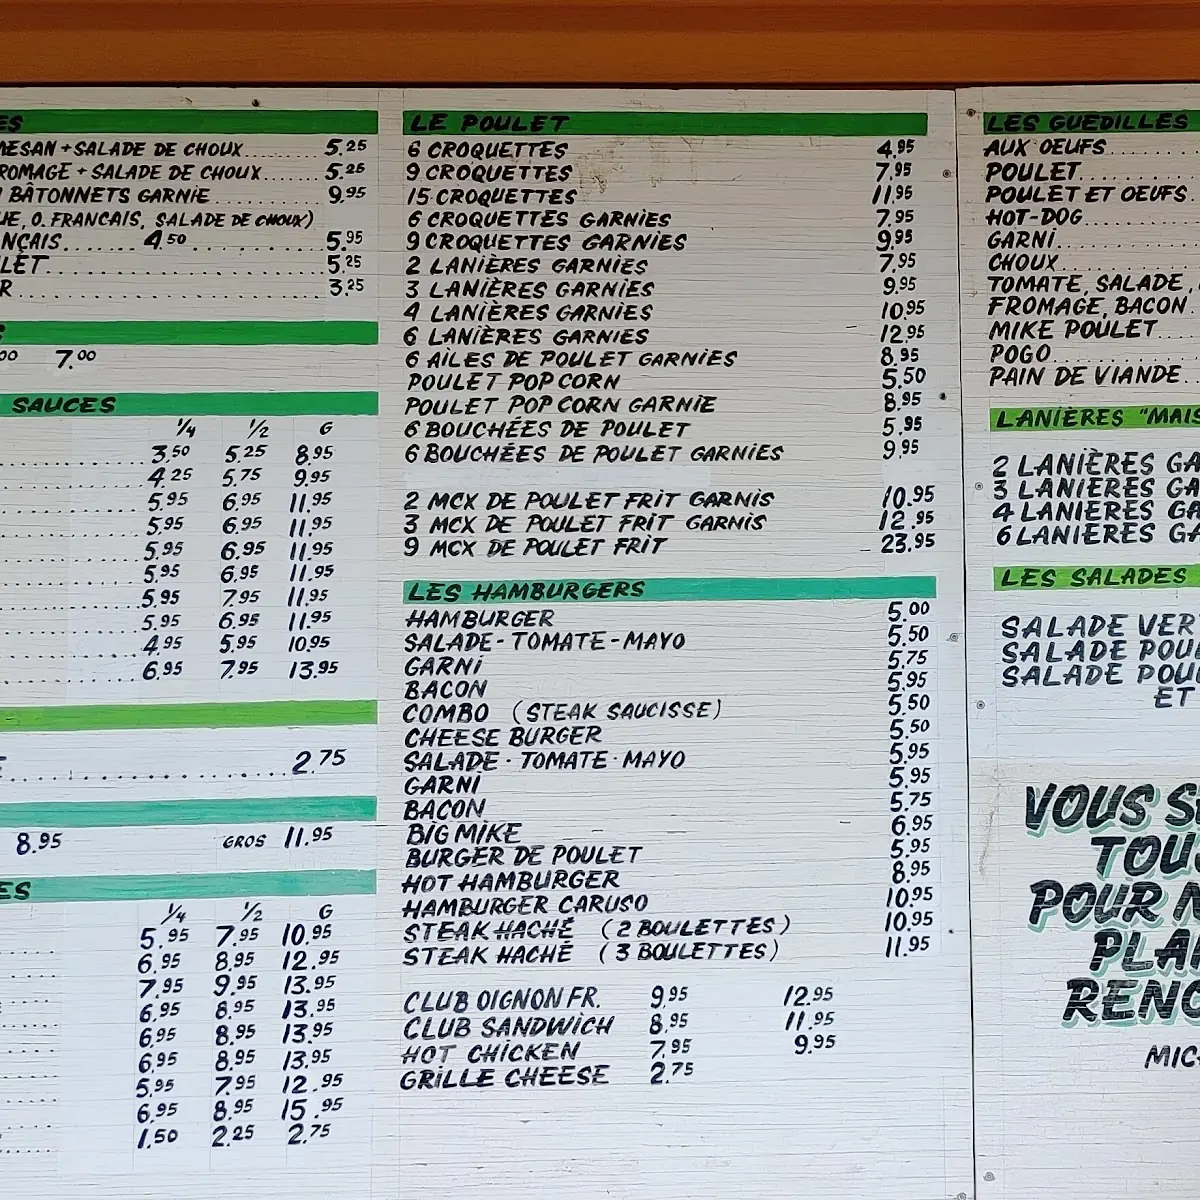 ES
MESAN + SALADE DE CHOUX 5.25
ROMAGE + SALADE DE CHOUX 5.25
BÂTONNETS GARNIE 9.95
UE, O. FRANCAIS, SALADE DE CHOUX)
NÇAIS 4.50 5.95
LET 5.25
R 3.25
S
00 7.00
SAUCES
1/4 1/2 G
3.50 5.25 8.95
4.25 5.75 9.95
5.95 6.95 11.95
5.95 6.95 11.95
5.95 6.95 11.95
5.95 6.95 11.95
5.95 7.95 11.95
5.95 6.95 11.95
4.95 5.95 10.95
6.95 7.95 13.95
E 2.75
8.95 GROS 11.95
ES
1/4 1/2 G
5.95 7.95 10.95
6.95 8.95 12.95
7.95 9.95 13.95
6.95 8.95 13.95
6.95 8.95 13.95
6.95 8.95 13.95
5.95 7.95 12.95
6.95 8.95 15.95
1.50 2.25 2.75
LE POULET
6 CROQUETTES 4.95
9 CROQUETTES 7.95
15 CROQUETTES 11.95
6 CROQUETTES GARNIES 7.95
9 CROQUETTES GARNIES 9.95
2 LANIÈRES GARNIES 7.95
3 LANIÈRES GARNIES 9.95
4 LANIÈRES GARNIES 10.95
6 LANIÈRES GARNIES 12.95
6 AILES DE POULET GARNIES 8.95
POULET POP CORN 5.50
POULET POP CORN GARNIE 8.95
6 BOUCHÉES DE POULET 5.95
6 BOUCHÉES DE POULET GARNIES 9.95
2 MCX DE POULET FRIT GARNIS 10.95
3 MCX DE POULET FRIT GARNIS 12.95
9 MCX DE POULET FRIT 23.95
LES HAMBURGERS
HAMBURGER 5.00
SALADE - TOMATE - MAYO 5.50
GARNI 5.75
BACON 5.95
COMBO (STEAK SAUCISSE) 5.50
CHEESE BURGER 5.50
SALADE - TOMATE - MAYO 5.95
GARNI 5.95
BACON 5.75
BIG MIKE 6.95
BURGER DE POULET 5.95
HOT HAMBURGER 8.95
HAMBURGER CARUSO 10.95
STEAK HACHÉ (2 BOULETTES) 10.95
STEAK HACHÉ (3 BOULETTES) 11.95
CLUB OIGNON FR. 9.95 12.95
CLUB SANDWICH 8.95 11.95
HOT CHICKEN 7.95 9.95
GRILLE CHEESE 2.75
LES GUEDILLES
AUX OEUFS
POULET
POULET ET OEUFS
HOT-DOG
GARNI
CHOUX
TOMATE, SALADE,
FROMAGE, BACON
MIKE POULET
POGO
PAIN DE VIANDE
LANIÈRES "MAIS
2 LANIÈRES GA
3 LANIÈRES GA
4 LANIÈRES GA
6 LANIÈRES GA
LES SALADES
SALADE VER
SALADE POUL
SALADE POUL
ET
VOUS S
TOUS
POUR N
PLAI
RENC
MICH